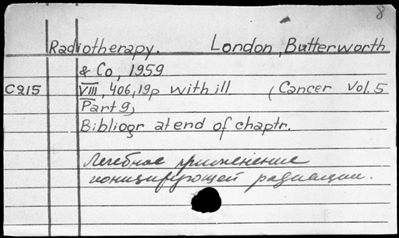 8
Radiotherapy. London, Butterworth
& Co, 1959
C215 VIII, 406, 19p with ill (Cancer Vol. 5
Part 9)
Bibliogr at end of chaptr.
Лечебное применение
ионизирующей радиации.